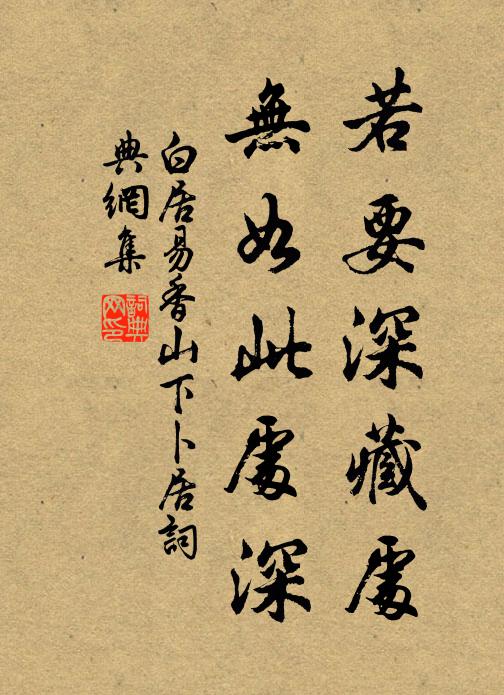 若要深藏處
無如此處深
白居易香山下卜居詞
典網集
詞典
网印